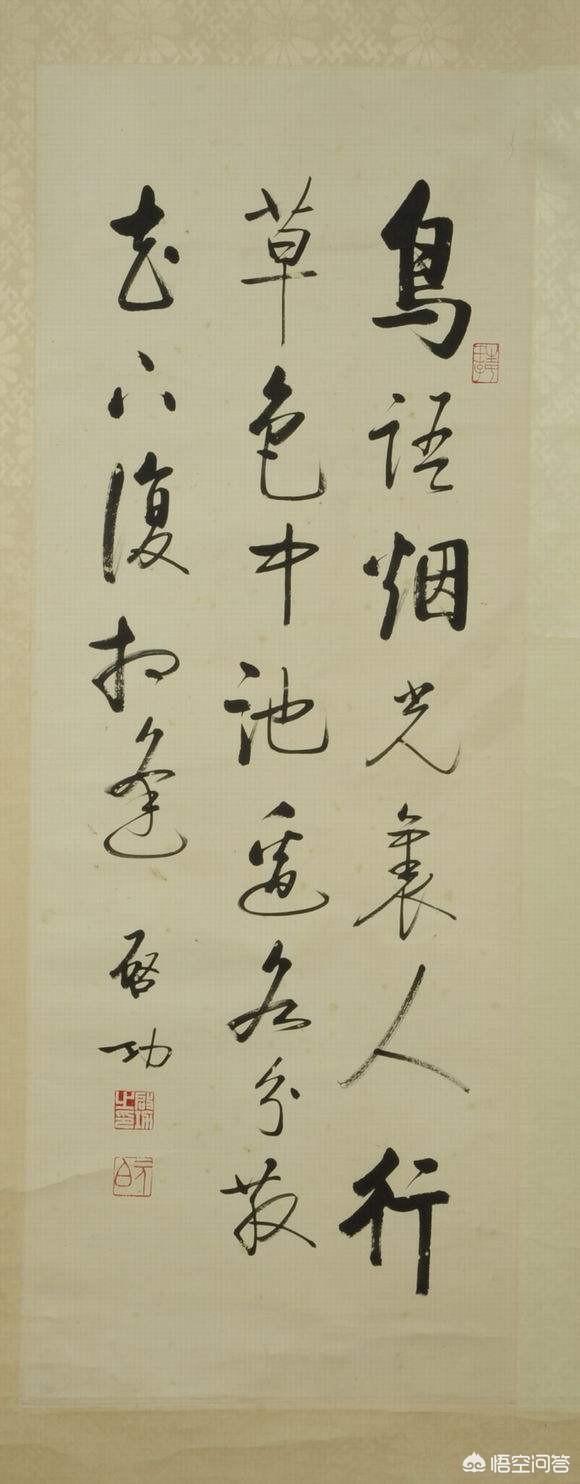 鳥語烟光裏人行
草色中池邊各分散
花下復相逢
啓功
悟空问答